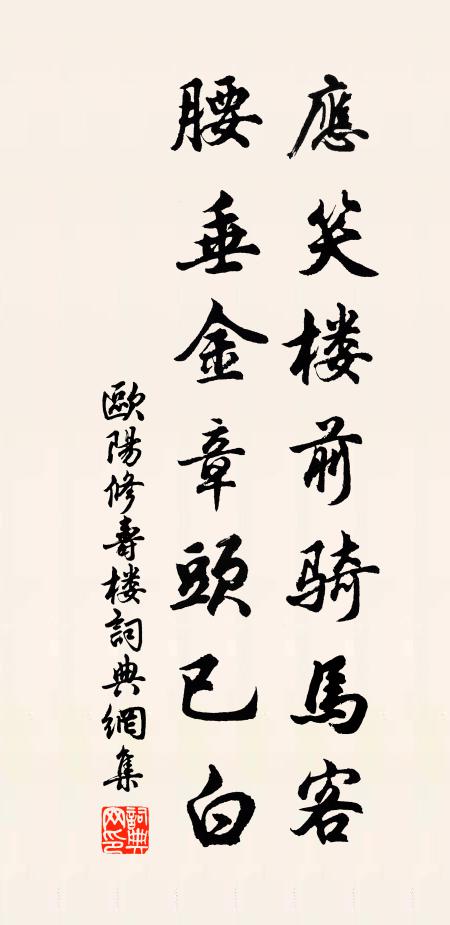 應笑楼前騎馬客
腰垂金章頭已白
歐陽修壽楼詞典網集
詞典網印